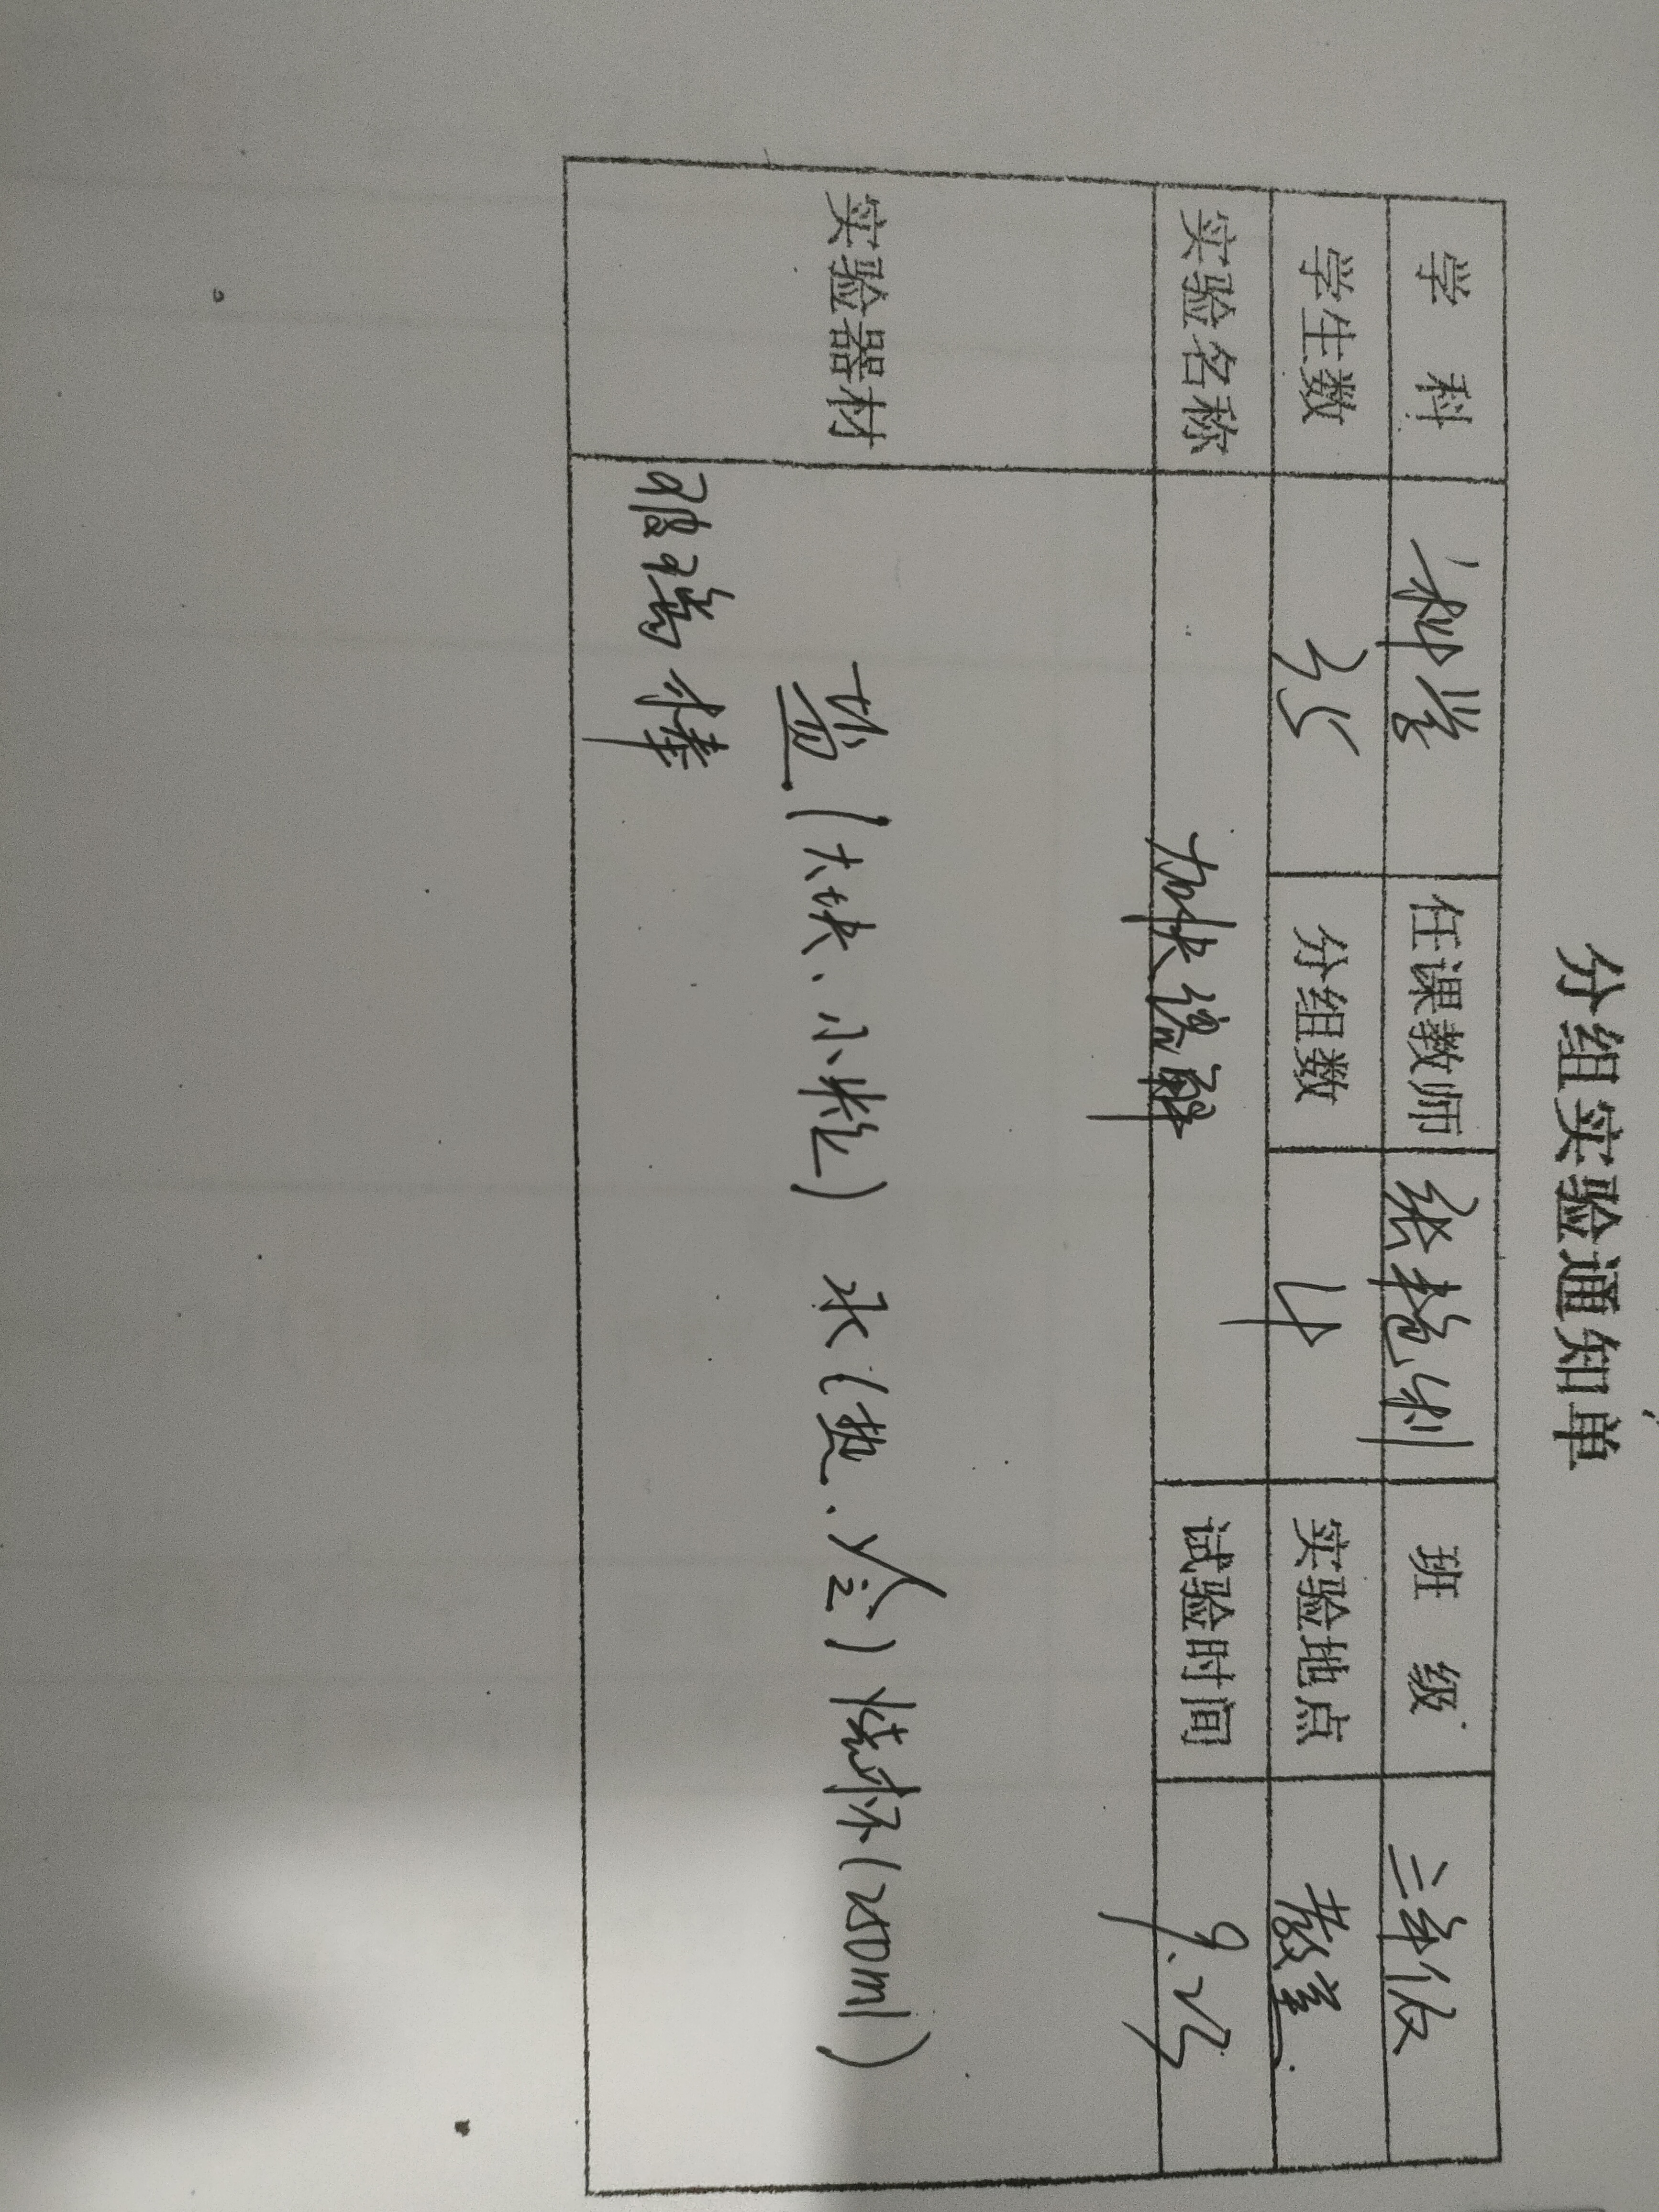 分组实验通知单
学 科 科学 任课教师 张艳利 班 级 三年级
学生数 35 分组数 4 实验地点 教室
实验名称 加快溶解 试验时间 9.25
实验器材 盐(大块、小粒) 水(热.冷) 烧杯(250ml)
玻璃棒